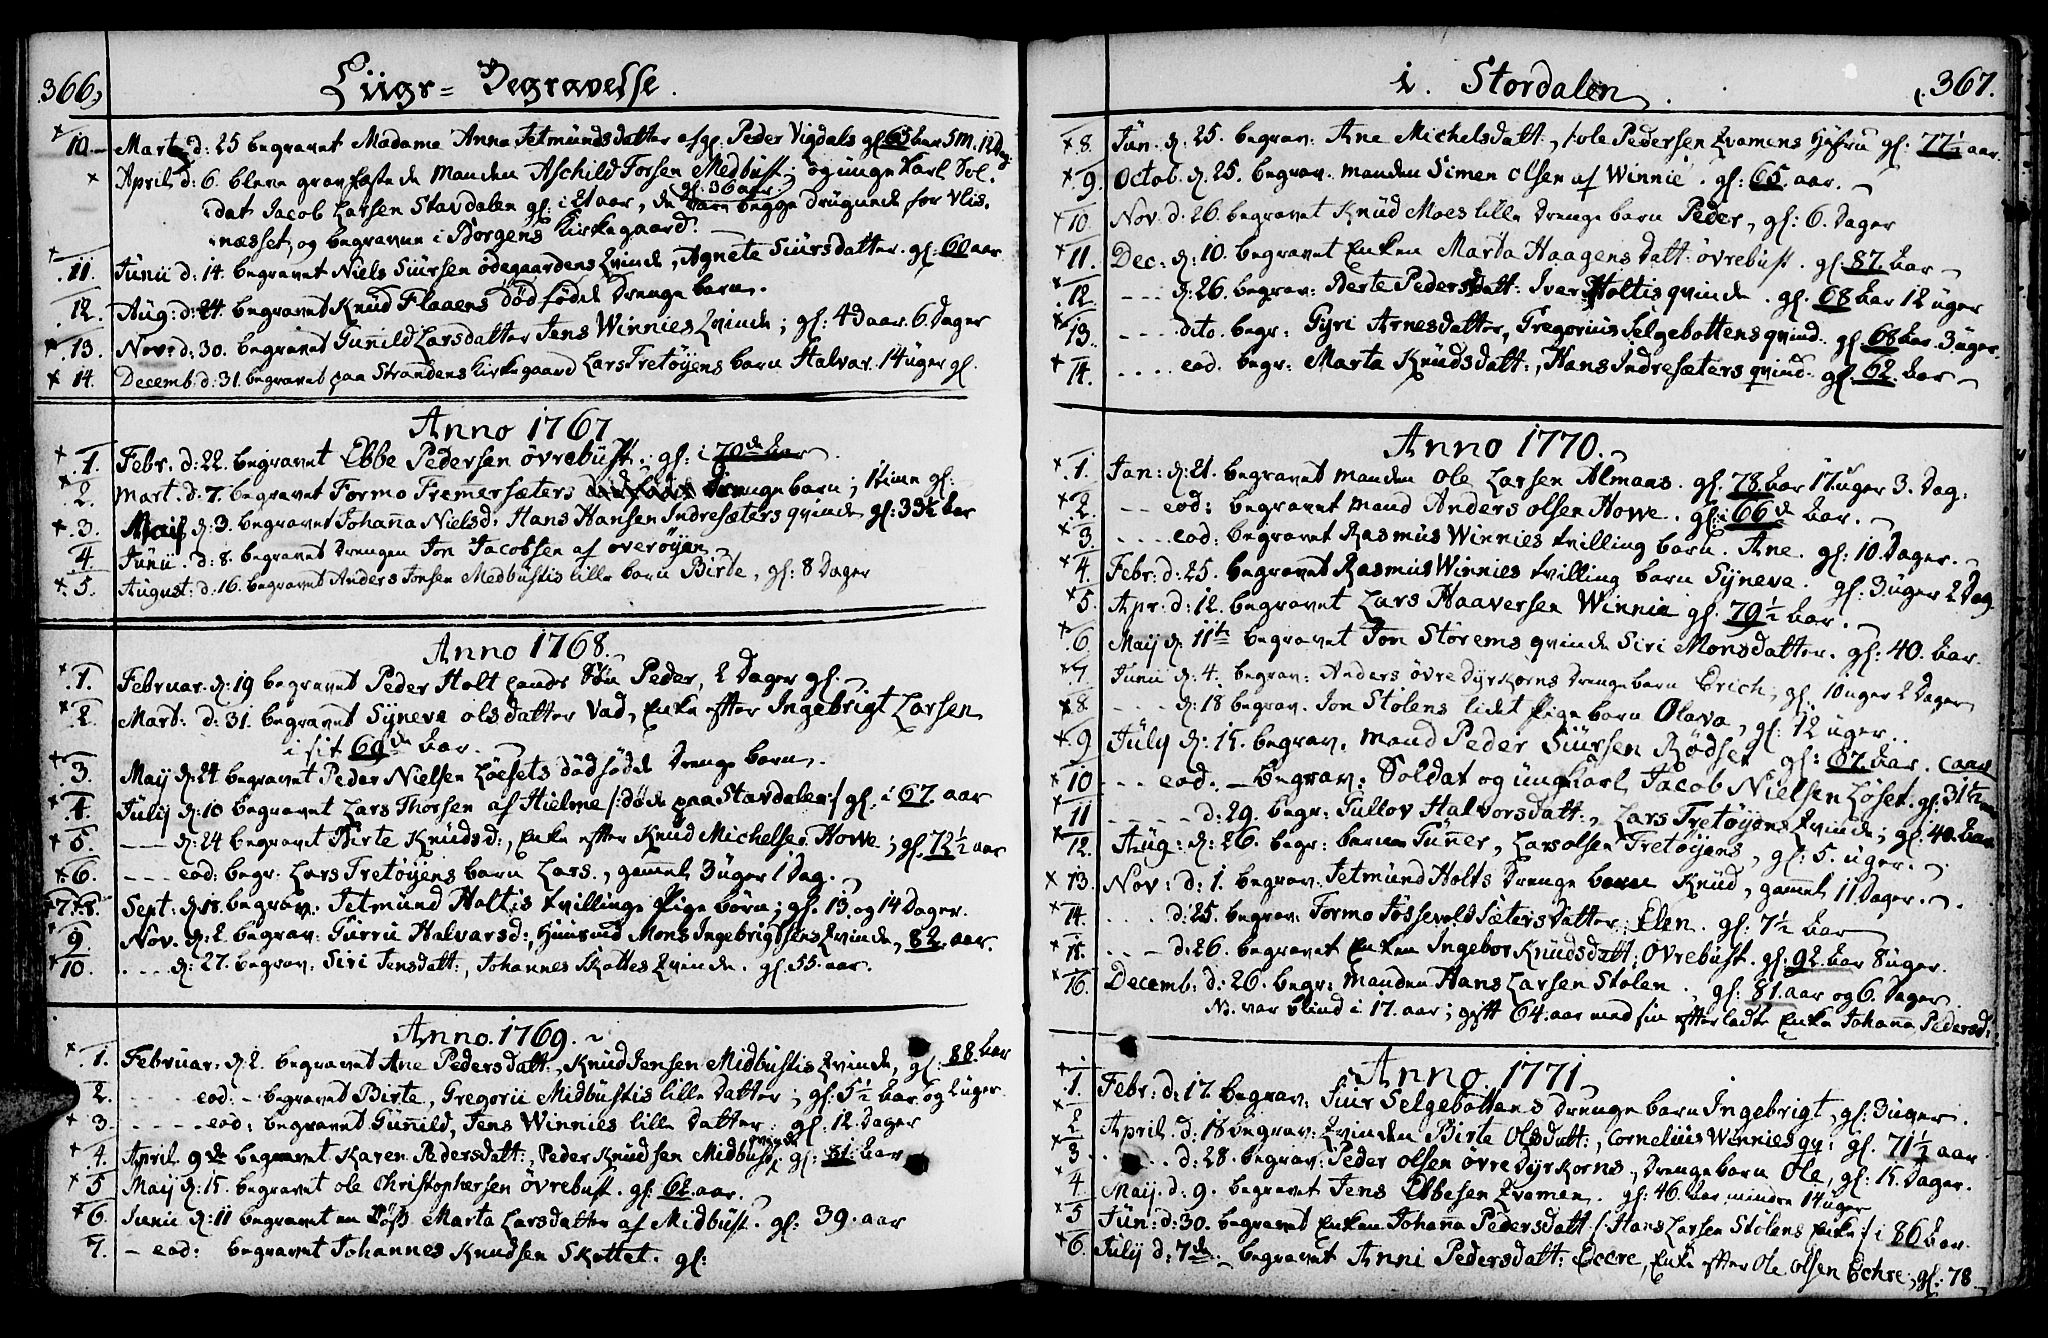 366.
Liigs-Begravelse.
10. Mart. d: 25 begravet Madame Anna Jetmundsdatter afg. Peder Vigdals gl. 65 aar 5 M. 12 Dag.
April d: 6. bleve gravfæstede Manden Aschild Torsen Medbust; og unge Karl Sol-
gl. 36 aar.
dat Jacob Larsen Stavdalen gl: i 21 aar, de vare begge drugnede for Vlis-
næsset, og begravne i Borgens Kirkegaard.
11. Junii d: 14. begravet Niels Siursen Ødegaardens Qvinde, Agnete Siursdatter. gl: 60 aar
12. Aug: d: 24. begravet Knud Flaaens dødfødde Drenge barn.
13. Nov: d: 30. begravet Gunild Larsdatter Jens Winnies Qvinde; gl: 40 aar. 6. Dager
14. Decemb. d: 31. begravet paa Strandens Kirkegaard Lars Tretøyens barn Halvar. 14 uger gl.
Anno 1767
1. Febr. d: 22. begravet Ebbe Pedersen Øvrebust. gl: i 70de Aar.
2. Mart. d. 7. begravet Tormo Fremersæters Drenge barn; 1 time gl:
3. Maij d: 3. begravet Johanna Nielsd: Hans Hansen Indresæters qvinde gl: 33½ Aar
4. Junii. d: 8. begravet Drengen Jon Jacobsen af Overøyen
5. August: d: 16. begravet Anders Jonsen Medbustis lille barn Birte, gl: 8 Dager
Anno 1768.
1. Februar. d: 19 begravet Peder Holt hands Søn Peder, 2 Dager gl.
2. Mart: d: 31. begravet Syneve Olsdatter Vad, Enke efter Ingebrigt Larsen
i sit 60de Aar.
3. Maij d: 24. begravet Peder Nielsen Løesets dødfødde Drenge barn.
4. Julij d: 10 begravet Lars Thorsen af Hielme /: døde paa Stavdalen :/ gl. i 67. aar
5. --- d: 24 begravet Birte Knudsd:, Enke efter Knud Michelsen Howe; gl. 72½ aar
6. --- eod: begr: Lars Tretøyens barn Lars, gammel 3 uger 1 Dag.
7. 8. Sept: d: 18. begrav: Jetmund Holtis tvillinge Pige børn; gl. 13 og 14 Dager.
9. Nov. d: 2. begrav: Gurru Halvarsd:, Huusmd Mons Ingebrigtsens Qvinde, 82. aar.
10. --- d: 27. begrav. Siri Jensdatt:, Johannes Skottes Qvinde. gl. 55. aar.
Anno. 1769.
1. Februar. d: 2. begravet Ane Pedersdatt:, Knud Jensen Midbustis Qvinde, gl. 88. Aar
2. --- eod: - begravet Birte, Gregorii Midbustis lille Datter; gl: 5½ Aar og 2 uger.
3. ---- eod: begravet Gunnild, Jens Winnies lille Datter: gl: 12. Dager
4. April 9de begravet Karen Pedersdatt:, Peder Knudsen Midbust qvinde gl: 81: Aar
5 Maij d: 15. begravet Ole Christophersen Øvrebust. gl. 62. aar.
6. Junii d: 11 begravet en Marta Larsdatter af Midbust. gl: 39. aar
7. - eod: begravet Johannes Knudsen Skottet. gl:
i. Stordalen. 367.
8. Jun. d: 25. begrav: Ane Michelsdatt, Ole Pedersen Qvamens Hustru gl: 77½ aar.
9. Octob. d. 25. begrav. Manden Simen Olsen af Winnie. gl: 65. aar.
10. Nov. d: 26. begravet Knud Moes lille Drenge barn Peder, gl: 6. Dager
11. Dec: d: 10. begravet Enken Marta Haagensdatt: Øvrebust. gl. 87. Aar
12. --- d: 26. begrav: Berte Pedersdatt: Iver Holtis qvinde. gl. 68 Aar 12 uger
13. --- dito. begr: Gyri Arnesdatter, Gregorius Selgebottens qvind. gl. 68 Aar. 3 uger.
14. --- eod. begr: Marta Knudsdatt:, Hans Indresæters qvind. gl. 62. Aar
Anno 1770.
1. Jan: d: 21. begravet manden Ole Larsen Almaas. gl. 78. Aar 17. uger 3. Dag:
2. -- eod: begravet Mand Anders Olsen Howe. gl: i 66de Aar.
3. --- eod: begravet Rasmus Winnies tvilling barn. Ane. gl: 10. Dager.
4. Febr: d: 25. begravet Rasmus Winnies tvilling barn Syneve. gl: 3 uger 2 Dag
5. Apr: d: 12. begravet Lars Haaversen Winnie gl. 79½ Aar.
6. Maij d. 11te begravet Jon Storems qvinde Siri Monsdatter. gl: 40. Aar.
7. Junii d: 4. begrav: Anders Øvre Dyrkorns Drenge barn Erich, gl. 10 uger 2 Dager
8. --- d: 18 begrav. Jon Stolens lidet Pige barn Olava, gl: 12 uger.
9 Julij d: 15. begrav. Mand Peder Siursen Rødset gl: 67. Aar.
10 --- eod. - begrav: Soldat og ung Karl Jacob Nielsen Løset. gl: 31½ aar
11 ---- d: 29. begr: Gullov Halvorsdatt:, Lars Tretøyens Qvinde; gl. 40. Aar
12. Aug: d: 26. begr: barnet Gunner, Lars Olsen Tretøyens, gl: 5. uger.
13. Nov: d: 1. begrav: Jetmund Holts Drenge barn Knud, gammel 11 Dager.
14. ---- d: 25. begrav: Tormo Fossevoldsæters Datter: Elen. gl: 7½ Aar
15. --- d: 26. begravet Enken Ingebor Knudsdatt: Øvrebust. gl. 92. Aar 8 uger.
16. Decemb: d: 26. begr: Manden Hans Larsen Stolen, gl: 81. aar og 6. Dager.
NB. var blind i 17. aar; gift 64. aar med sin efterladte Enke Johanna Pedersd:
Anno 1771
1. Febr: d: 17. begrav: Siur Selgebottens Drenge barn Ingebrigt, gl: 3 uger.
2 April. d. 18 begrav: Qvinden Birte Olsdatt:, Cornelius Winnies qv: gl. 71½ aar
3 ---- d: 28. begrav: Peder Olsen Øvre Dyrkorns, Drenge barn Ole, gl: 15. Dager.
4. Maij. d: 9. begravet Jens Ebbesen Qvamen. gl: 46. Aar mindre 14 uger
5 Jun: d: 30. begravet Enken Johanna Pedersdatt /: Hans Larsen Stolens Enke :/ i 86 Aar.
6. Julij d: 7de. begravet Anni Pedersdatt: Eccre, Enke efter Ole Olsen Echre, gl: 78.